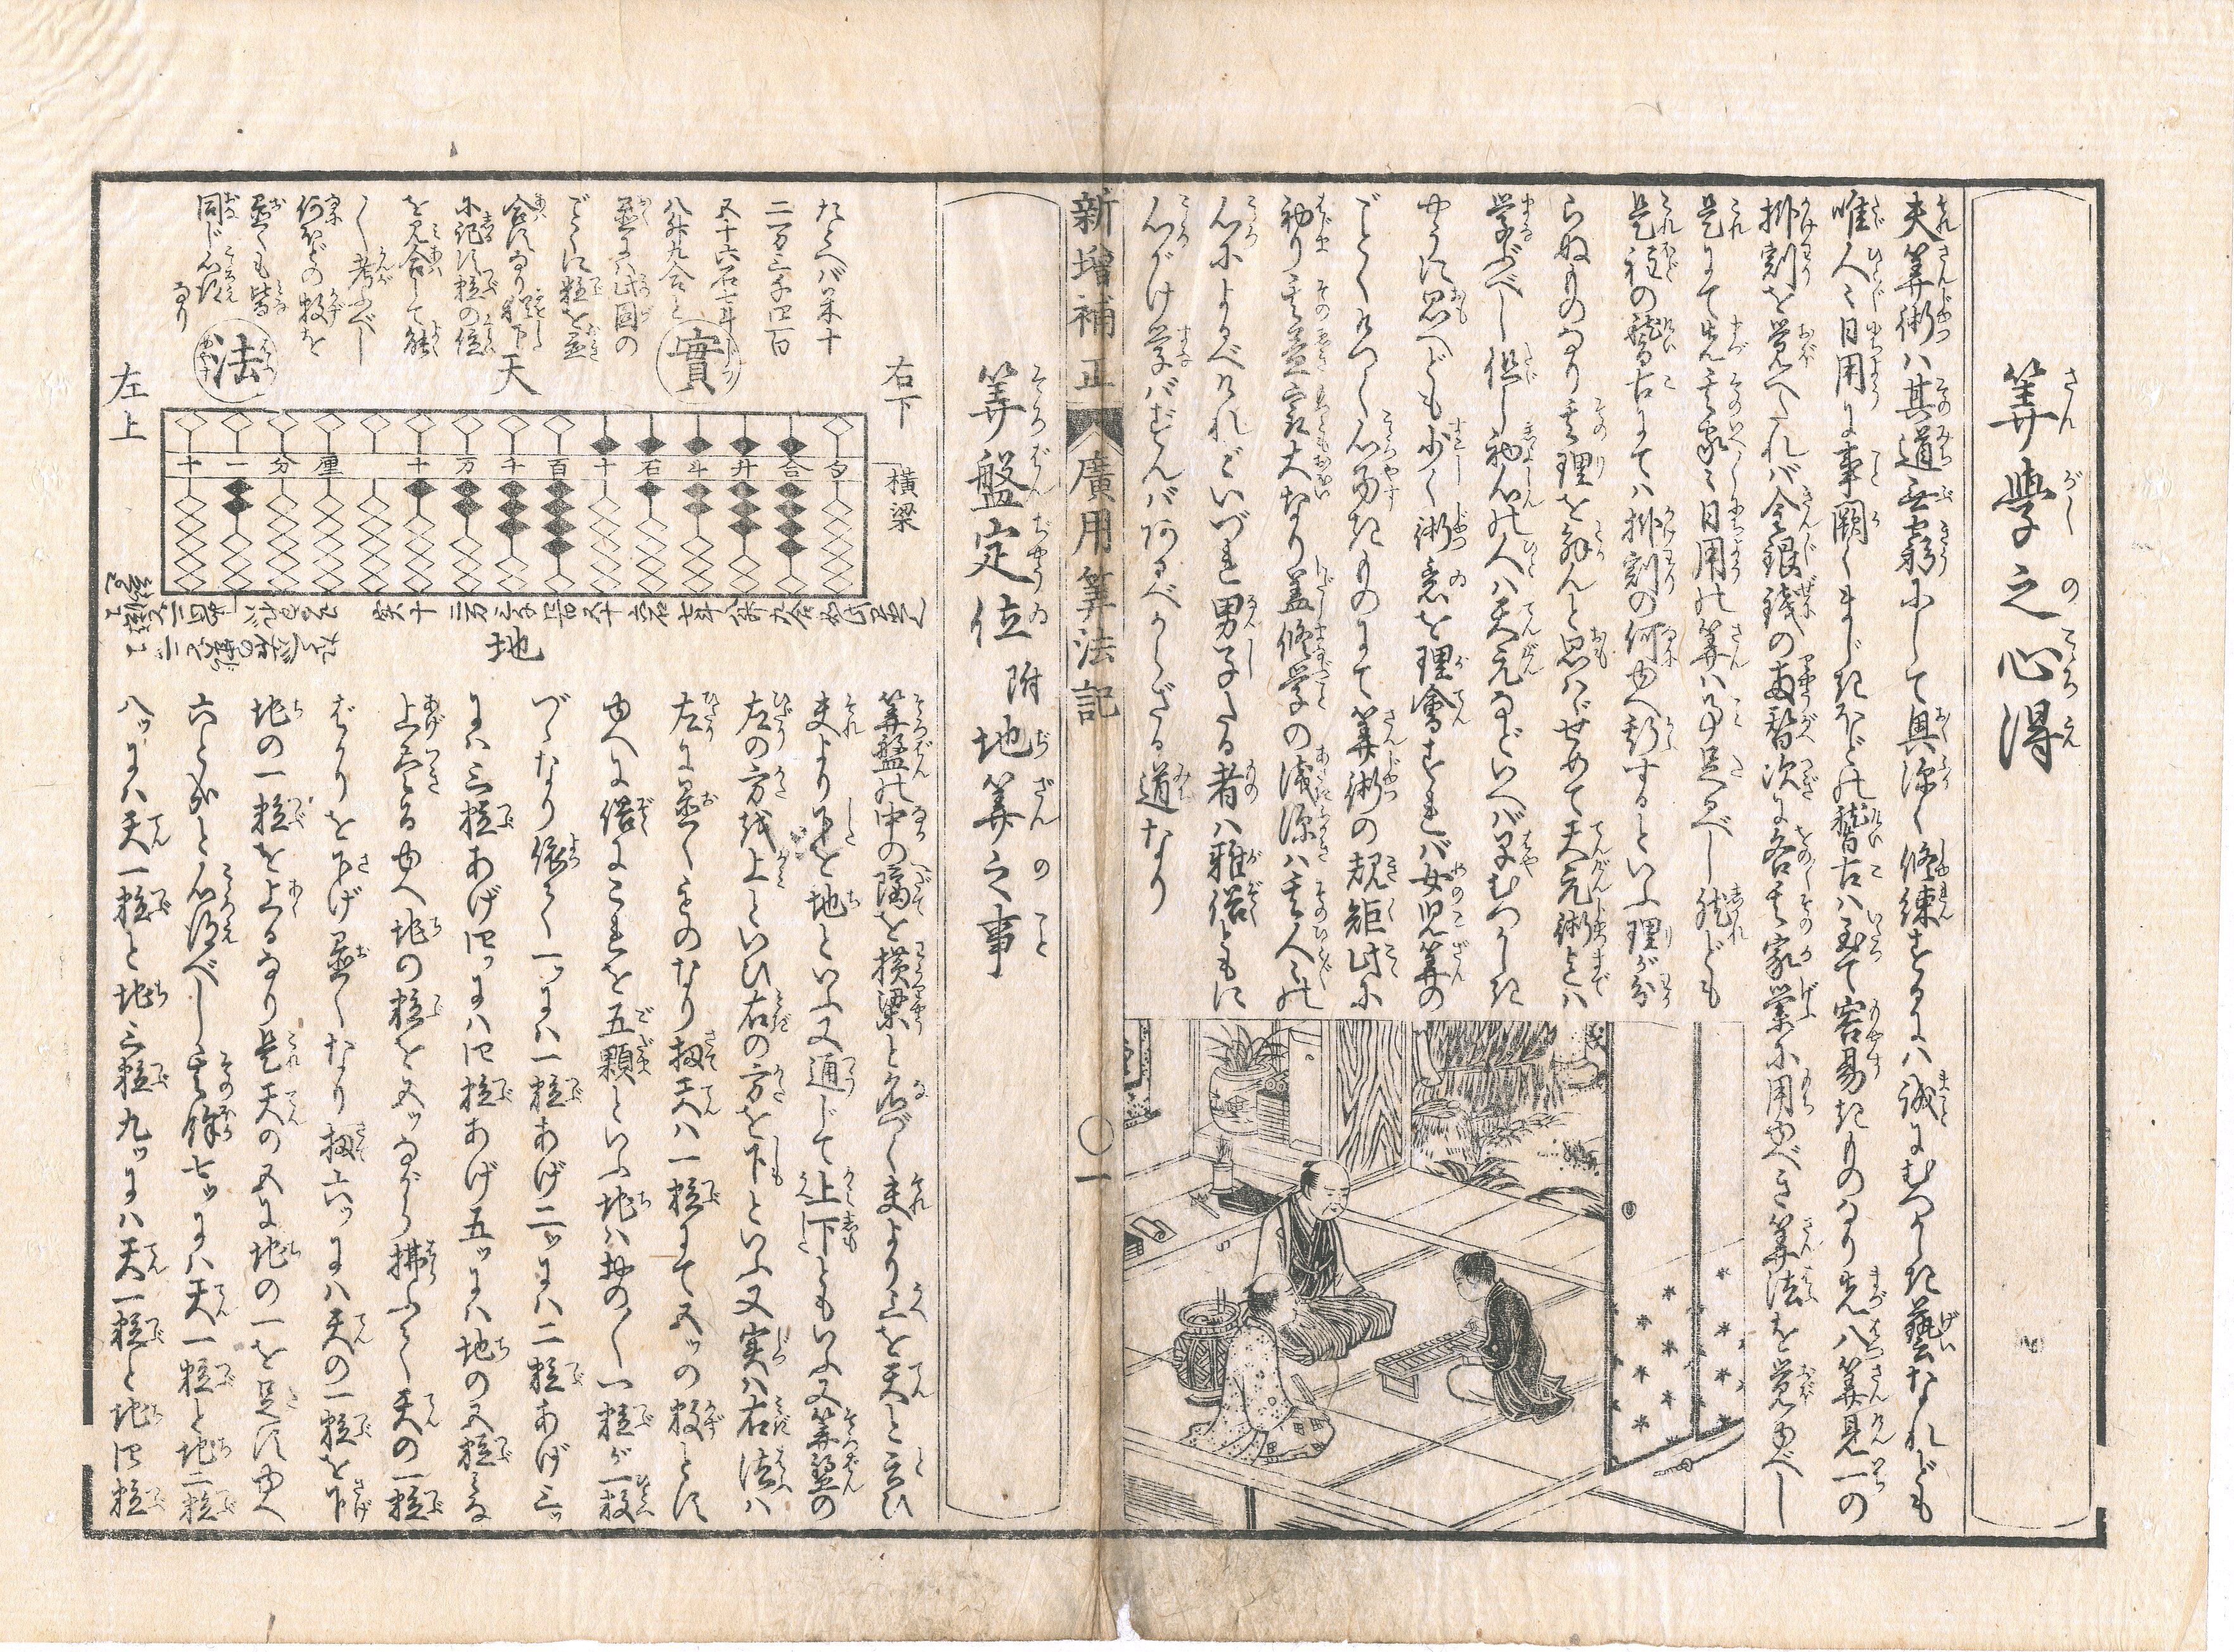 算學之心得
夫算術ハ其道無窮にして奥深く修練するにハ誠にむつかしき藝なれども
唯人々日用に事闕くまじきほどの稽古ハ至て容易きものなり先八算見一の
掛割を覚へたれバ金銀銭の両替次に各其家業に用ゆべき算法を覚ゆべし
是にて先其家々日用の算ハ事足るべし然ども
是程の稽古にてハ掛割の何ゆへ斯するといふ理が分
らぬものなり其理を解んと思はゞせめて天元術までハ
学ぶべし但し初心の人ハ天元などいへバ早むつかしき
やうに思へども少く術意を理會すれバ女児算の
ごとくけつく心易きものにて算術の規矩此に
初り其益最大なり蓋修学の浅深ハ其人々の
心によるべけれどいづれ男子たる者ハ雅俗ともに
心がけ学バずんバあるべからざる道なり
新増補正 廣用算法記 〇一
算盤定位 附 地算之事
たとへバ米十
二万三千四百
五十六石七斗
八升九合と
置にハ此図の
ごとくに粒を並
合すなり梁下
に記す粒の位
を見合して能
く考ふべし
何ほどの数を
置くも皆
同じ心得
なり
右下
横梁
實
天
法
左上
夕 合 升 斗 石 十 百 千 万 十 厘 分 一 十
地
算盤の中の隔を横梁と名づく夫より上を天と云ひ
夫より下を地といふ又通じて上下ともいふ又算盤の
左の方を上といひ右の方を下といふ又実ハ右法ハ
左に置くものなり扨天ハ一粒にて五ツの数とす
ゆへに俗にこれを五顆といふ地ハ物の一粒が一数
づゝなり依て一ツにハ一粒あげ二ツにハ二粒あげ三ツ
にハ三粒あげ四ツにハ四粒あげ五ツにハ地の五粒みな
上きる由へ地の粒を五ツながら拂ふて天の一粒
ばかりを下げ置くなり扨六ツにハ天の一粒を下げ
地の一粒を上るなり是天の五に地の一を足すゆへ
六となると心得べし其餘七ツにハ天一粒と地二粒
八ツにハ天一粒と地三粒九ツにハ天一粒と地四粒